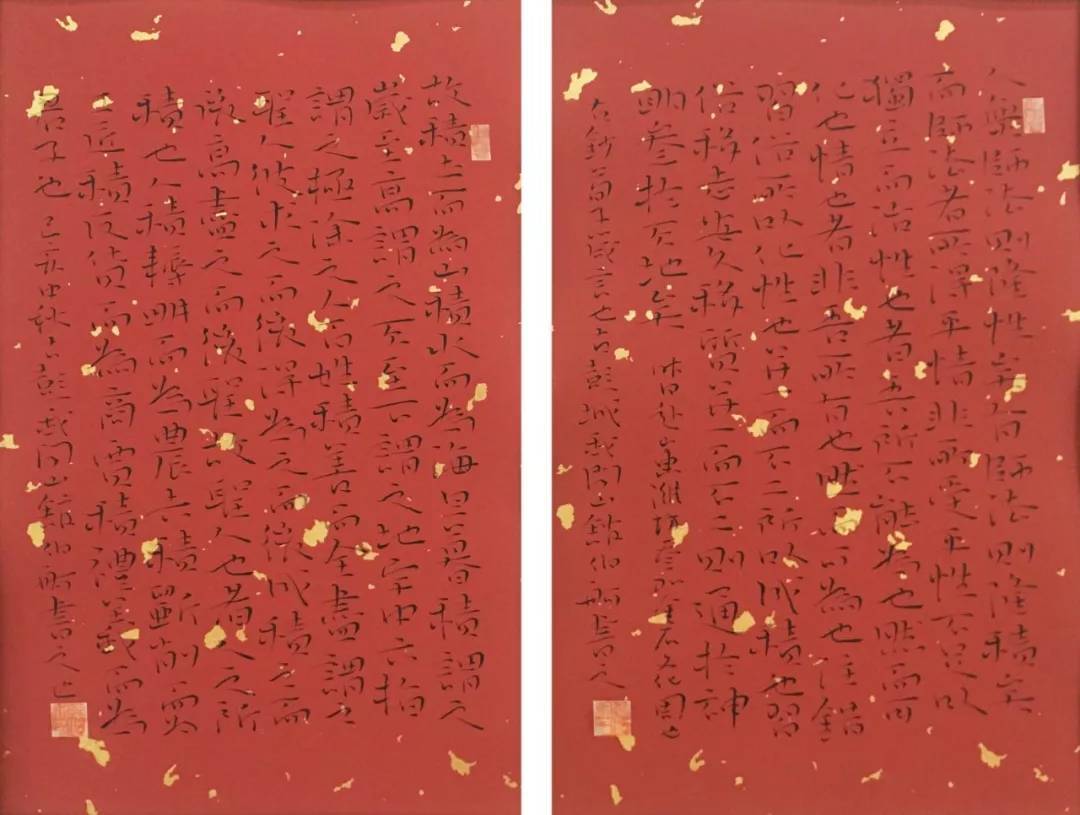 人無師法則隆性矣有師法則隆積矣
而師法者所得乎情非所受乎性不足以
獨立而治性也者吾所不能為也然而可
化也情也者非吾所有也然而可為也注錯
習俗所以化性也并一而不二所以成積也習
俗移志安久移質并一而不二則通於神
明參於天地矣 昨日赴山東濰坊參加
右鈔荀子箴言也古彭城山館伯舫書之
故積土而為山積水而為海旦暮積謂之
歲至高謂之天至下謂之地宇中六指
謂之極涂之人百姓積善而全盡謂之
聖人彼求之而後得為之而後成積之而
後高盡之而後聖故聖人也者人之所
積也人積耨耕而為農夫積斲削而為
工匠積反貨而為商賈積禮義而為
君子也 己亥中秋古彭城山館伯舫書之